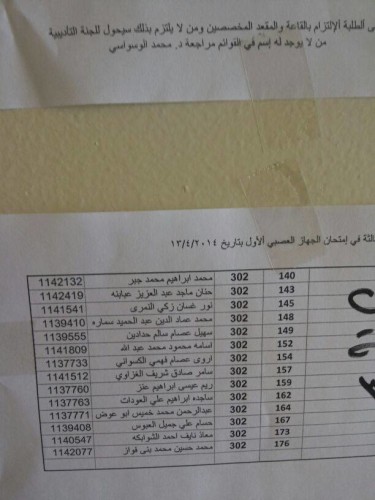 ى الطلبة الإلتزام بالقاعة والمقعد المخصصين ومن لا يلتزم بذلك سيحول للجنة التأديبية
من لا يوجد له إسم في القوائم مراجعة د. محمد الوسواسي
ثالثة في إمتحان الجهاز العصبي الأول بتاريخ ١٣/٤/٢٠١٤
140 302 محمد ابراهيم محمد جبر 1142132
143 302 حنان ماجد عبد العزيز عبابنه 1142419
145 302 نور غسان زكي النمري 1141541
148 302 محمد عماد الدين عبد الحميد سماره 1139410
149 302 سهيل عصام سالم حدادين 1139555
152 302 اسامه محمود محمد عبد الله 1141809
154 302 اروى عصام فهمي الكسواني 1137733
157 302 سامر صادق شريف الغزاوي 1141512
159 302 ريم عيسى ابراهيم عنز 1137760
162 302 ساجده ابراهيم علي العودات 1137763
164 302 عبدالرحمن محمد خميس ابو عوض 1137771
167 302 حسام علي جميل العبوس 1139408
173 302 معاذ نايف احمد الشوابكه 1140547
176 302 محمد حسين محمد بني فواز 1142077